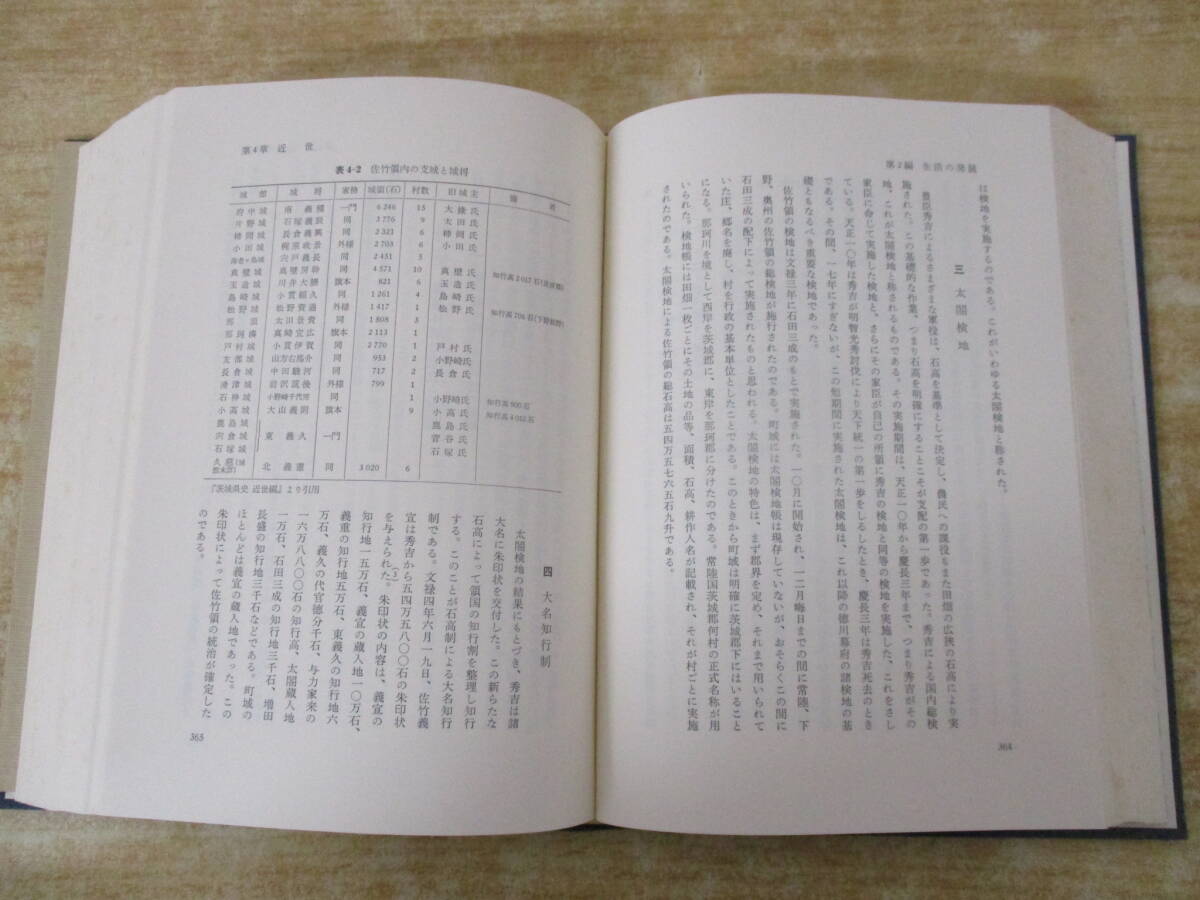 第2編 生活の発展
は検地を実施するのである。これがいわゆる太閤検地と称された。
三 太閤検地
豊臣秀吉によるさまざまな軍役は、石高を基準として決定し、農民への課役もまた田畑の広狭の石高により実
施された。この基礎的な作業、つまり石高を明確にすることこそが支配の第一歩であった。秀吉による国内総検
地、これが太閤検地と称されるものである。その実施期間は、天正一〇年から慶長三年まで、つまり秀吉がその
家臣に命じて実施した検地と、さらにその家臣が自己の所領に秀吉の検地と同等の検地を実施した、これをさし
ている。天正一〇年は秀吉が明智光秀討伐により天下統一の第一歩をしるしたとき、慶長三年は秀吉死去のとき
である。その間、一七年にすぎないが、この短期間に実施された太閤検地は、これ以降の徳川幕府の諸検地の基
礎ともなるべき重要な検地であった。
佐竹領の検地は文禄三年に石田三成のもとで実施された。一〇月に開始され、一二月晦日までの間に常陸、下
野、奥州の佐竹領の総検地が施行されたのである。町域には太閤検地帳は現存していないが、おそらくこの間に
石田三成の配下によって実施されたものと思われる。太閤検地の特色は、まず郡界を定め、それまで用いられて
いた庄、郷名を廃し、村を行政の基本単位としたことである。このときから町域は明確に茨城郡下にはいること
になる。那珂川を境として西岸を茨城郡に、東岸を那珂郡に分けたのである。常陸国茨城郡何村の正式名称が用
いられた。検地帳には田畑一枚ごとにその土地の品等、面積、石高、耕作人名が記載され、それが村ごとに実施
されたのである。太閤検地による佐竹領の総石高は五四万五七六五石九升である。
364
第4章 近 世
表4-2 佐竹領内の支城と城将
城館 城将 家格 城領(石) 村数 旧城主 備考
府中城 南義種 一門 6 246 15 大掾氏
片野城 石塚義辰 同 3 776 9 太田氏
柿岡城 長倉義興 同 2 321 6
小田城 外様 2 703 6 小田氏
海老ヶ島城 宍戸義長 同 2 451 3
真壁城 真壁房幹 同 4 571 10 真壁氏 知行高2 017石
旗本 821 6 玉造氏
同 1 261 4 島崎氏
外様 1 417 1 松野氏
同 1 808 3
旗本 2 113 1
同 2 770 1 戸村氏
同 953 2 小野崎氏
同 717 2 長倉氏
外様 799
小野崎千代房 同 1 小野崎氏 知行高800石
大山義則 旗本 9 小高氏
鹿島城 鹿島氏
東義久 一門
石塚城 石塚氏
北義憲 同 3 020 6
『茨城県史 近世編』より引用
四 大名知行制
太閤検地の結果にもとづき、秀吉は諸
大名に朱印状を交付した。この新らたな
石高によって領国の知行割を整理し知行
する。このことが石高制による大名知行
制である。文禄四年六月一九日、佐竹義
宣は秀吉から五四万五八〇〇石の朱印状
を与えられた。朱印状の内容は、義宣の
知行地一五万石、義宣の蔵入地一〇万石、
義重の知行地五万石、東義久の知行地六
万石、義久の代官徳分千石、与力家来の
一六万八八〇〇石の知行高、太閤蔵入地
一万石、石田三成の知行地三千石、増田
長盛の知行地三千石などである。町域の
ほとんどは義宣の蔵入地であった。この
朱印状によって佐竹領の統治が確定した
のである。
365